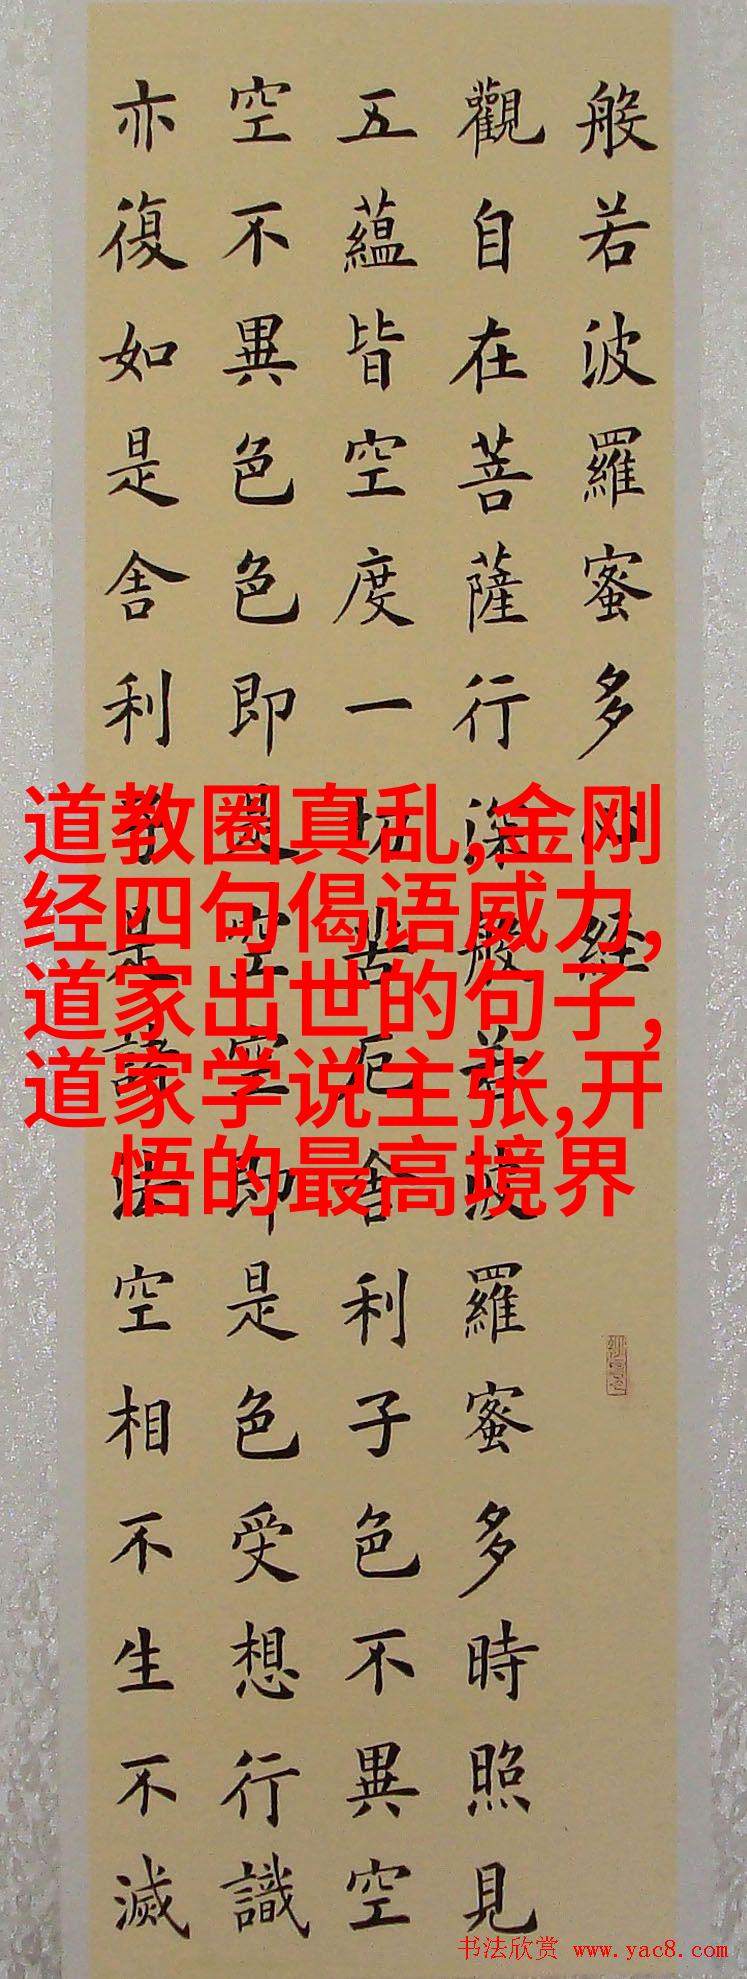 般若波羅蜜多心經
觀自在菩薩行深般若波羅蜜多時照見
五蘊皆空度一切苦厄舍利子色不異空
空不異色色即是空空即是色受想行識
亦復如是舍利子是諸法空相不生不滅
道教圈真乱,金刚
经四句偈语威力,
道家出世的句子,
道家学说主张,开
悟的最高境界
书法欣赏 www.yac8.com